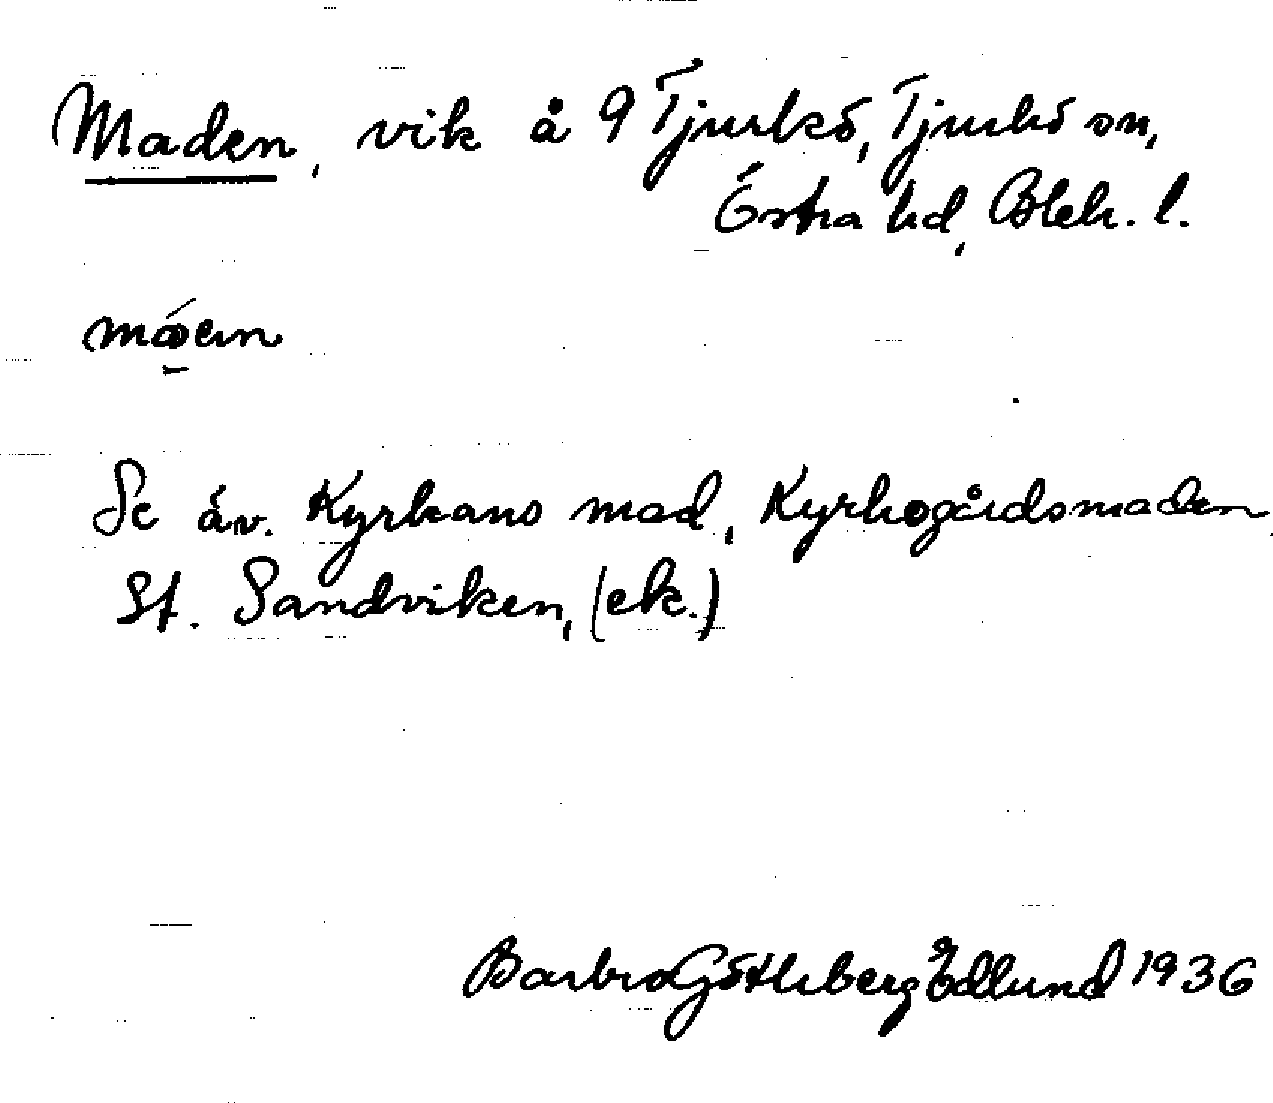 Maden, vik å 9 Tjurkö, Tjurkö sn,
Östra hd, Blek. l.
Se äv. Kyrkans mad, Kyrkogårdsmaden
St. Sandviken, (ek.)
Barbro Göthberg Edlund 1936